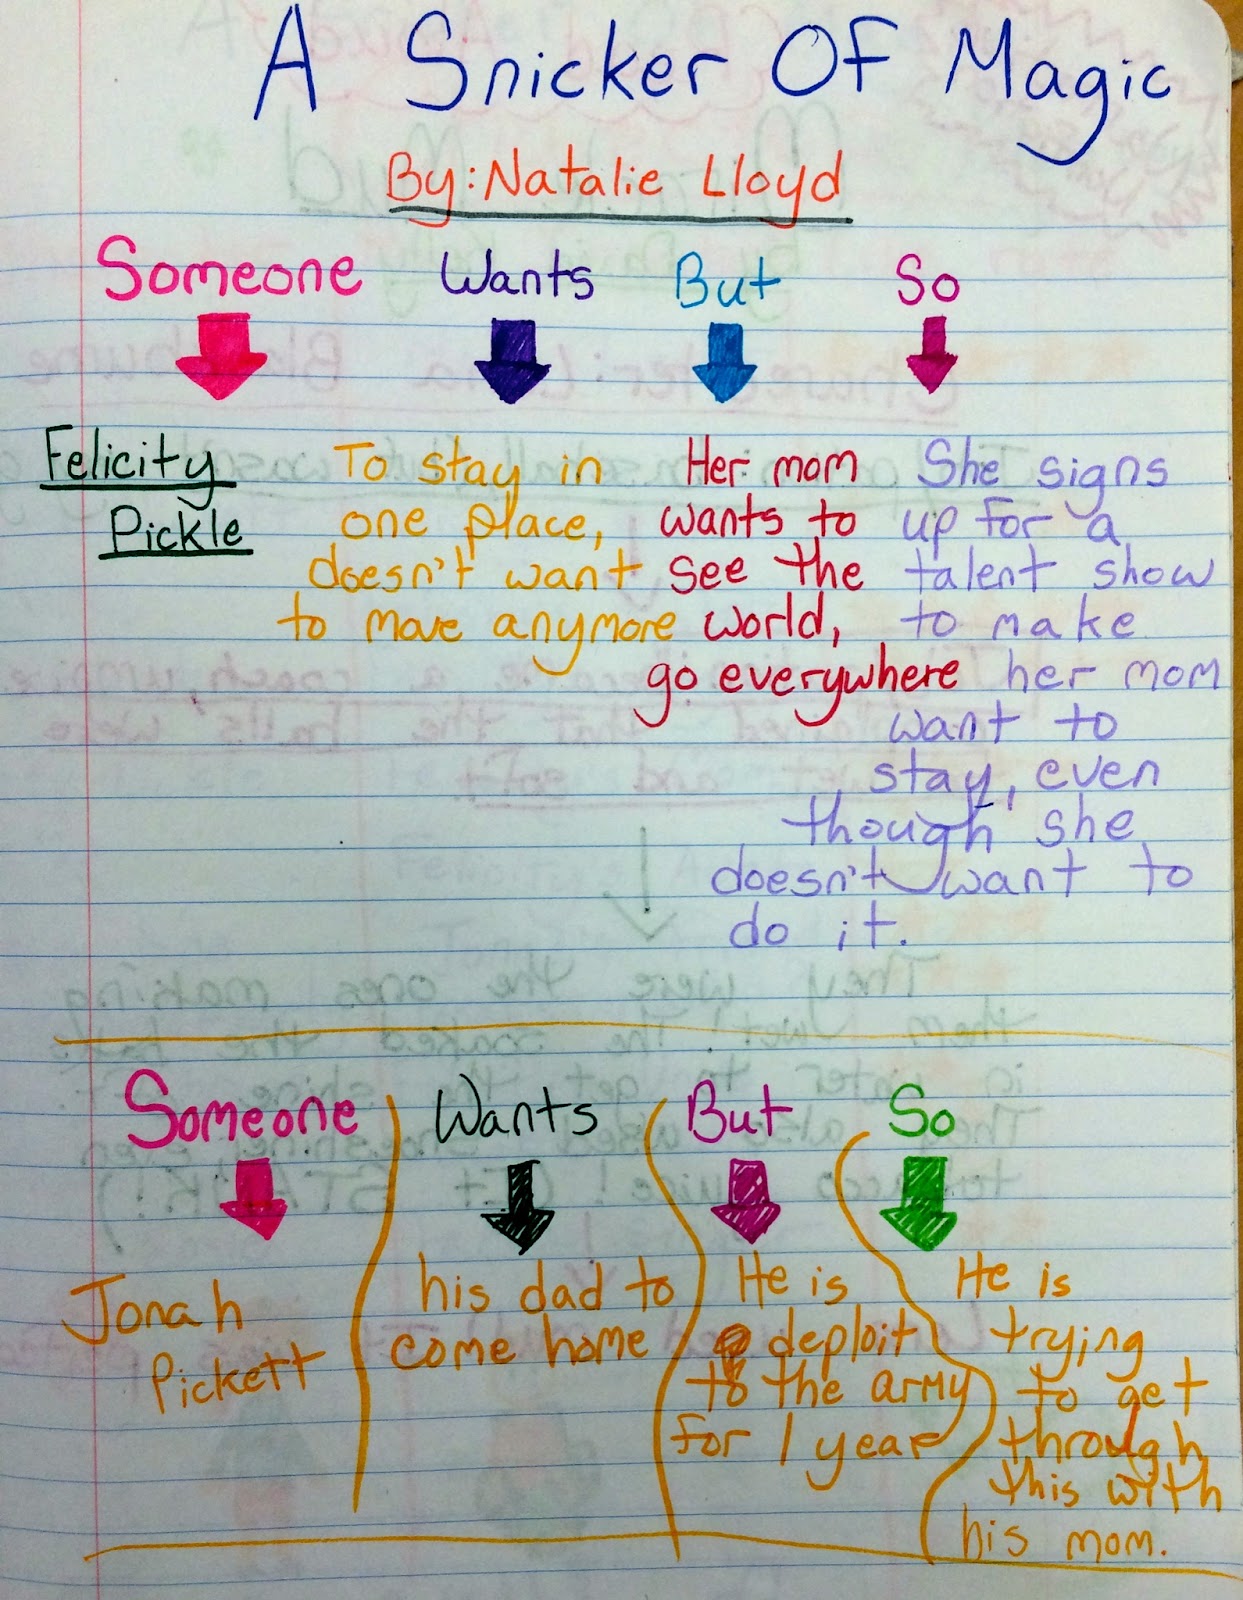 A Snicker Of Magic
By: Natalie Lloyd
Someone Wants But So
Felicity
Pickle
To stay in
one place,
doesn't want
to move anymore
Her mom
wants to
see the
world,
go everywhere
She signs
up for a
talent show
to make
her mom
want to
stay, even
though she
doesn't want to
do it.
Someone Wants But So
Jonah
Pickett
his dad to
come home
He is
deploit
to the army
for 1 year
He is
trying
to get
through
this with
his mom.